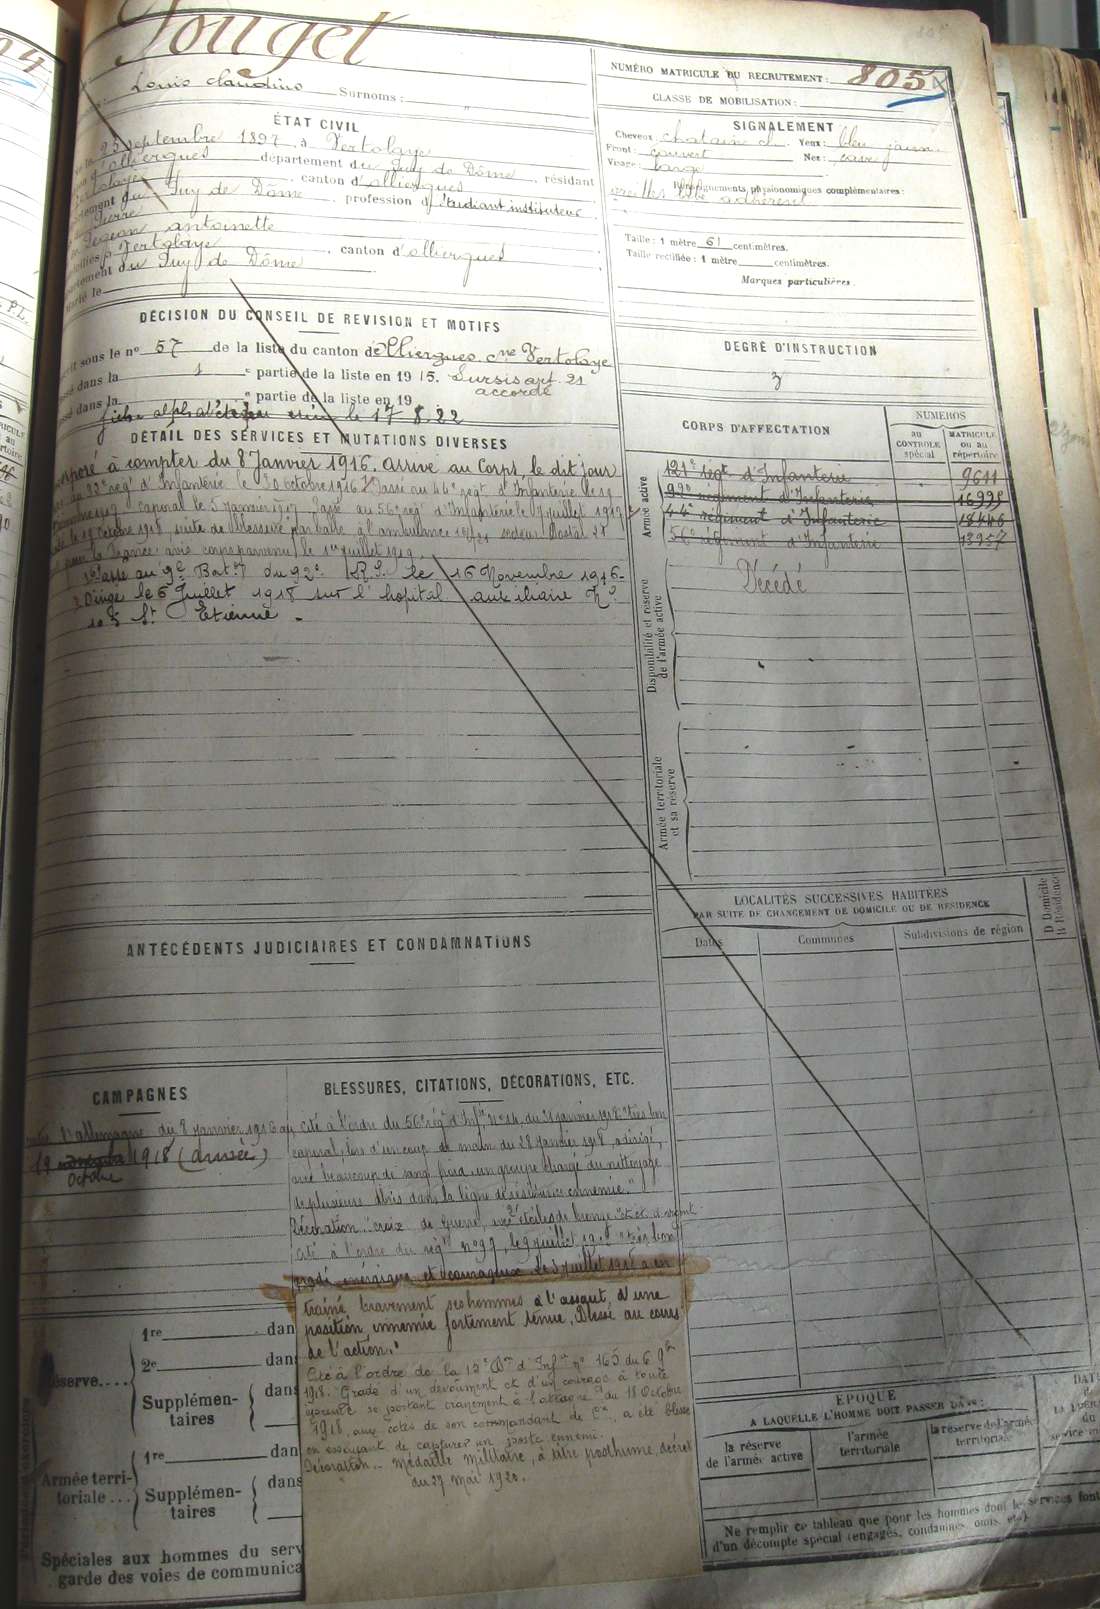 Pouget
NUMÉRO MATRICULE DU RECRUTEMENT : 805
Louis Claudius Surnoms :
CLASSE DE MOBILISATION :
ÉTAT CIVIL
25 septembre 1897, à Vertolaye
d'Olliergues département du Puy de Dôme, résidant
canton d'Olliergues
du Puy de Dôme profession d'étudiant instituteur
Pierre
antoinette
Vertolaye, canton d'Olliergues
département du Puy de Dôme
Marié le
SIGNALEMENT
Cheveux chatain cl. Yeux : bleu jaun.
Front : couvert Nez : cave
Visage : large
Renseignements physionomiques complémentaires :
oreilles lobe adhérent
Taille : 1 mètre 61 centimètres.
Taille rectifiée : 1 mètre centimètres.
Marques particulières.
DÉCISION DU CONSEIL DE REVISION ET MOTIFS
sous le nº 57 de la liste du canton de Olliergues. cne Vertolaye
dans la 1 e partie de la liste en 1915. Sursis art. 21
accordé
dans la e partie de la liste en 19
le 17.8.22
DEGRÉ D'INSTRUCTION
3
DÉTAIL DES SERVICES ET MUTATIONS DIVERSES
Incorporé à compter du 8 Janvier 1916. arrivé au Corps le dit jour
régt d'Infanterie le 30 octobre 1916 Passé au 44e régt d'Infanterie le 19
caporal le 5 janvier 1917. Passé au 56e régt d'Infanterie le 9 juillet 1917
le 19 octobre 1918, suite de blessure par balle à l'ambulance 16/21 secteur Postal 27
pour la France avis corps parvenu le 1er juillet 1919.
Passé au 9e Batn du 92e R.I. le 16 Novembre 1916-
Dirigé le 6 Juillet 1918 sur l'hopital auxiliaire No
103 St Etienne.
CORPS D'AFFECTATION
NUMÉROS
au CONTROLE spécial
MATRICULE ou au répertoire
Armée active
121e régt d'Infanterie 9611
99e régiment d'Infanterie 16995
44e régiment d'Infanterie 18446
56e régiment d'Infanterie 13957
Disponibilité et réserve de l'armée active
Décédé
Armée territoriale et sa réserve
LOCALITÉS SUCCESSIVES HABITÉES
PAR SUITE DE CHANGEMENT DE DOMICILE OU DE RÉSIDENCE
Dates Communes Subdivisions de région
D Domicile
R Résidence
ANTÉCÉDENTS JUDICIAIRES ET CONDAMNATIONS
CAMPAGNES
l'allemagne du 8 janvier 1916 au
19 novembre 1918 (armée)
Octobre
BLESSURES, CITATIONS, DÉCORATIONS, ETC.
Cité à l'ordre du 56e régt d'Infie nº 14, du 31 janvier 1918 "très bon
caporal, lors d'un coup de main du 28 janvier 1918, a dirigé,
avec beaucoup de sang froid, un groupe chargé du nettoyage
de plusieurs abris dans la ligne de résistance ennemie."
Décoration : croix de Guerre, avec 2 étoiles de bronze et et d'argent
Cité à l'ordre du régt nº 99, le 9 juillet 1918 "très bon
gradé énergique et courageux. Le 3 juillet 1918 a en
trainé bravement ses hommes à l'assaut d'une
position ennemie fortement tenue. Blessé au cours
de l'action."
Cité à l'ordre de la 15e Don d'Infie nº 163 du 6 9bre
1918. Gradé d'un dévoument et d'un courage à toute
épreuve se portant cranement à l'attaque du 18 Octobre
1918, aux cotés de son commandant de Cie, a été blessé
en essayant de capturer un poste ennemi.
Décoration - Médaille militaire, à titre posthume, décret
du 27 mai 1920.
Réserve....
1re dans
2e dans
Supplémentaires dans
Armée territoriale...
1re dans
Supplémentaires dans
Spéciales aux hommes du serv
garde des voies de communica
ÉPOQUE
A LAQUELLE L'HOMME DOIT PASSER DANS :
la réserve de l'armée active
l'armée territoriale
la réserve de l'armée territoriale
Ne remplir ce tableau que pour les hommes dont les services font
d'un décompte spécial (engagés, condamnés, omis, etc.)